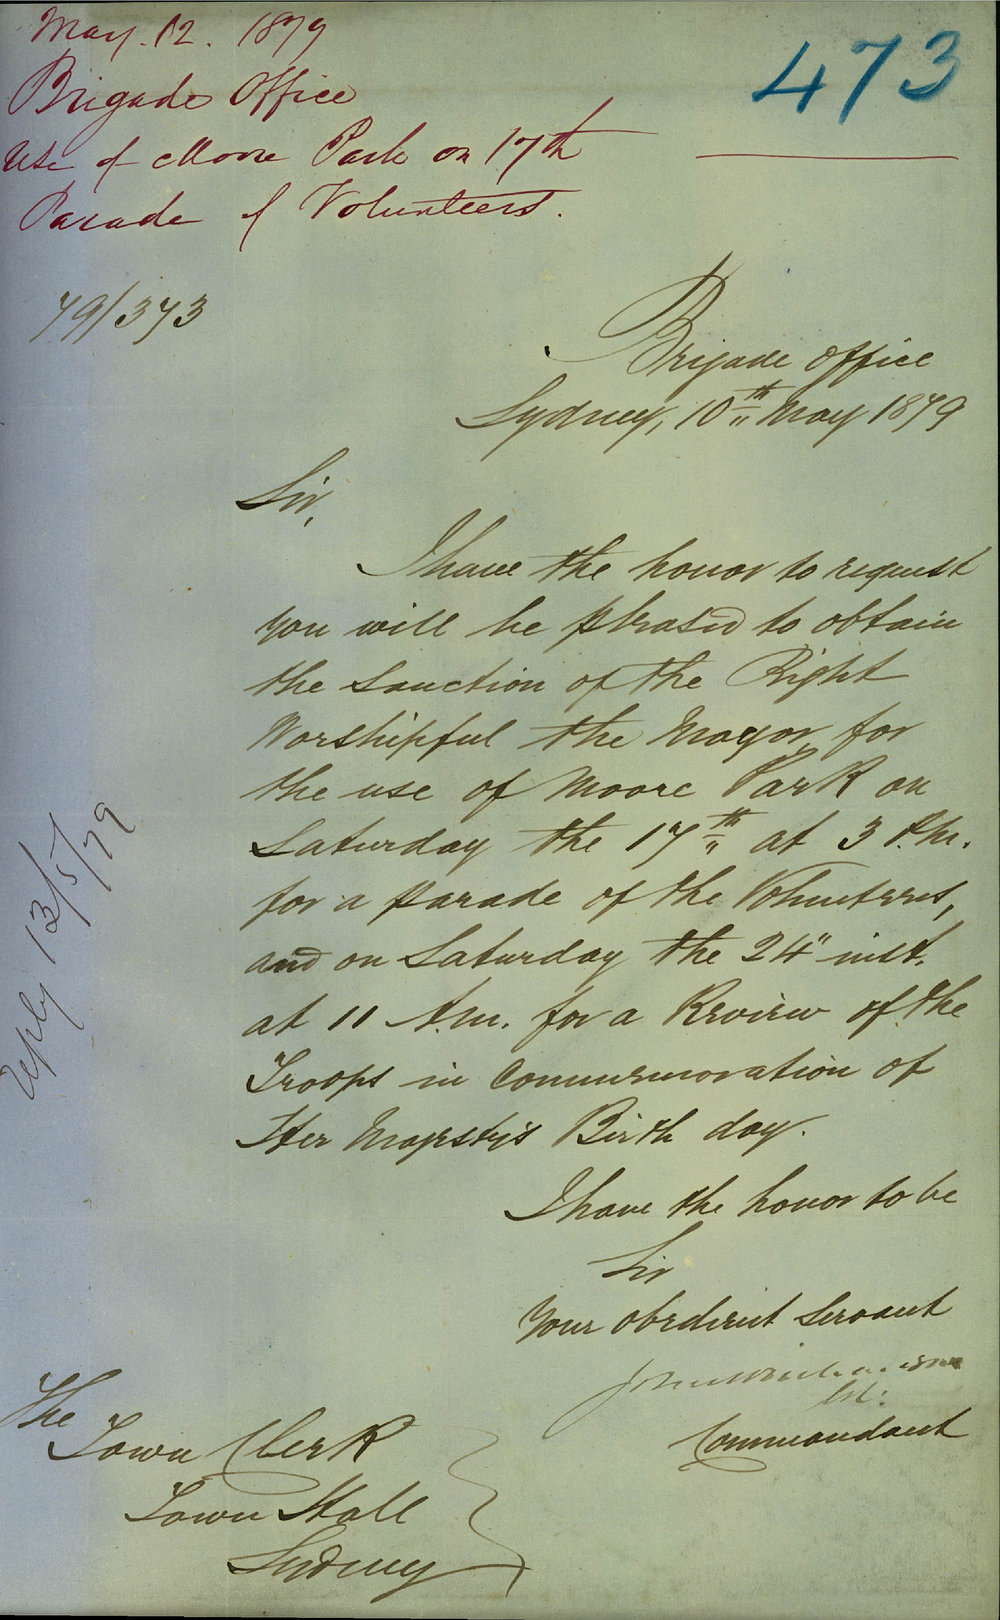 May. 12. 1879
Brigade Office
Use of Moore Park on 17th
Parade of Volunteers.
473
79/373
Brigade Office
Sydney, 10th May 1879
Sir,
I have the honor to request
you will be pleased to obtain
the sanction of the Right
Worshipful the Mayor for
the use of Moore Park on
Saturday the 17th at 3 P.M.
for a parade of the Volunteers,
and on Saturday the 24" inst.
at 11 A.M. for a Review of the
Troops in Commemoration of
Her Majesty's Birth day.
I have the honor to be
Sir
Your obedient Servant
Col:
Commandant
The
Town Clerk
Town Hall
Sydney
Reply 13/5/79